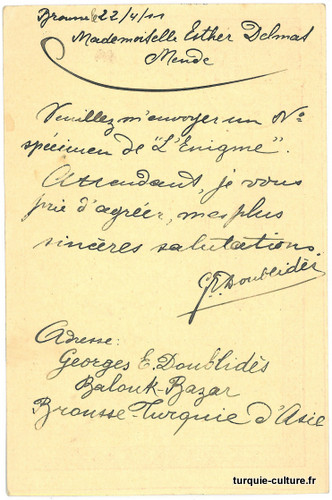 Brousse le 22/4/11
Mademoiselle Esther Delmas
Mende
Veuillez m'envoyer un No
spécimen de "L'Enigme".
Attendant, je vous
prie d'agréer, mes plus
sincères salutations.
G.E. Doublidès
Adresse:
Georges E. Doublidès
Balouk-Bazar
Brousse-Turquie d'Asie
turquie-culture.fr